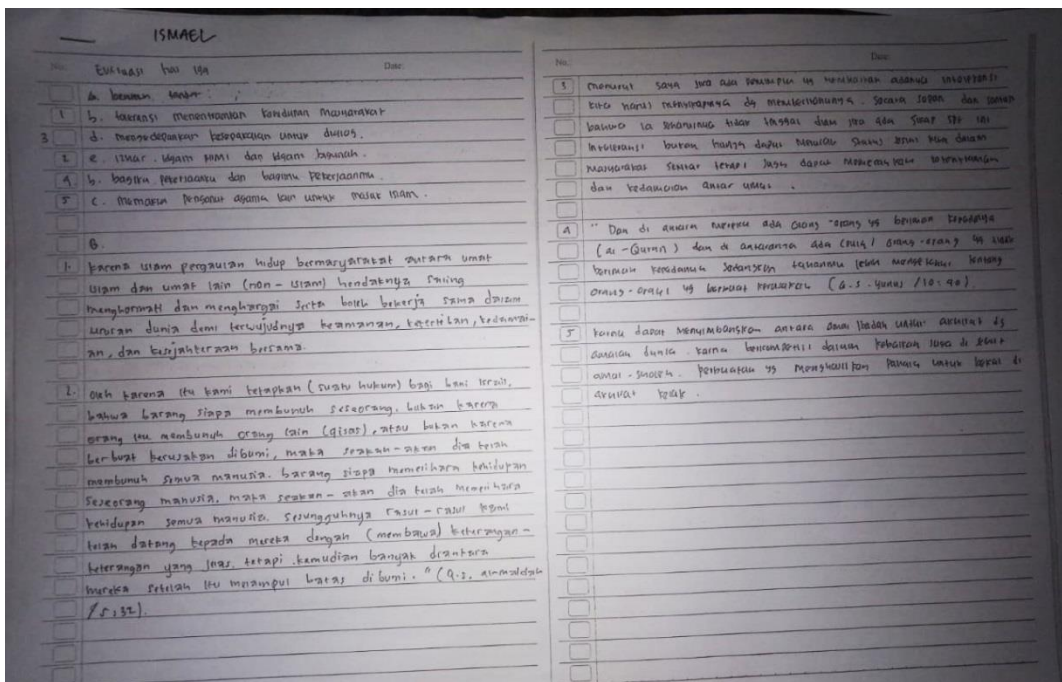 ISMAEL
No.
Date:
Evaluasi hal 154
a.
1 b. toleransi menentramkan kehidupan masyarakat
3 d. mengedepankan kesepakatan untuk
2 e. izhar . idgam bigunah .
4. b. bagiku pekerjaanku dan bagimu pekerjaanmu .
5 c. memaksa penganut agama lain untuk masuk islam .
B.
1. karena islam pergaulan hidup bermasyarakat antara umat
islam dan umat lain (non-islam) hendaknya saling
menghormati dan menghargai serta boleh bekerja sama dalam
urusan dunia demi terwujudnya keamanan, ketertiban, kedamai-
an, dan kesejahteraan bersama.
2. oleh karena itu kami tetapkan (suatu hukum) bagi bani israil,
bahwa barang siapa membunuh seseorang, bukan karena
orang itu membunuh orang lain (qisas), atau bukan karena
berbuat kerusakan dibumi, maka seakan-akan dia telah
membunuh semua manusia. barang siapa memelihara kehidupan
seseorang manusia, maka seakan-akan dia telah memelihara
kehidupan semua manusia. sesungguhnya rasul-rasul kami
telah datang kepada mereka dengan (membawa) keterangan-
keterangan yang jelas. tetapi kemudian banyak diantara
mereka setelah itu melampui batas di bumi. " (Q.s. al-maidah
/5:32).
No.
Date:
3 menurut saya jika ada yg membiarkan adanya intoleransi
kita harus menyikapinya dg . secara sopan dan
bahwa ia seharusnya tidak tinggal diam jika ada sikap spt ini
intoleransi bukan hanya dapat dalam
masyarakat sekitar tetapi juga dapat
dan kedamaian antar umat .
4 " Dan di antara mereka ada orang-orang yg beriman kepadanya
(al-Quran) dan di antaranya ada (pula) orang-orang yg tidak
beriman kepadanya sedangkan tuhanmu lebih mengetahui tentang
orang-orang yg berbuat kerusakan (Q.S. Yunus /10:40).
5 karna dapat menyimbangkan antara ibadah untuk akhirat dg
amalan dunia . karna dalam kebaikan juga di sebut
amal-sholeh. perbuatan yg menghasilkan pahala untuk bekal di
akhirat kelak .